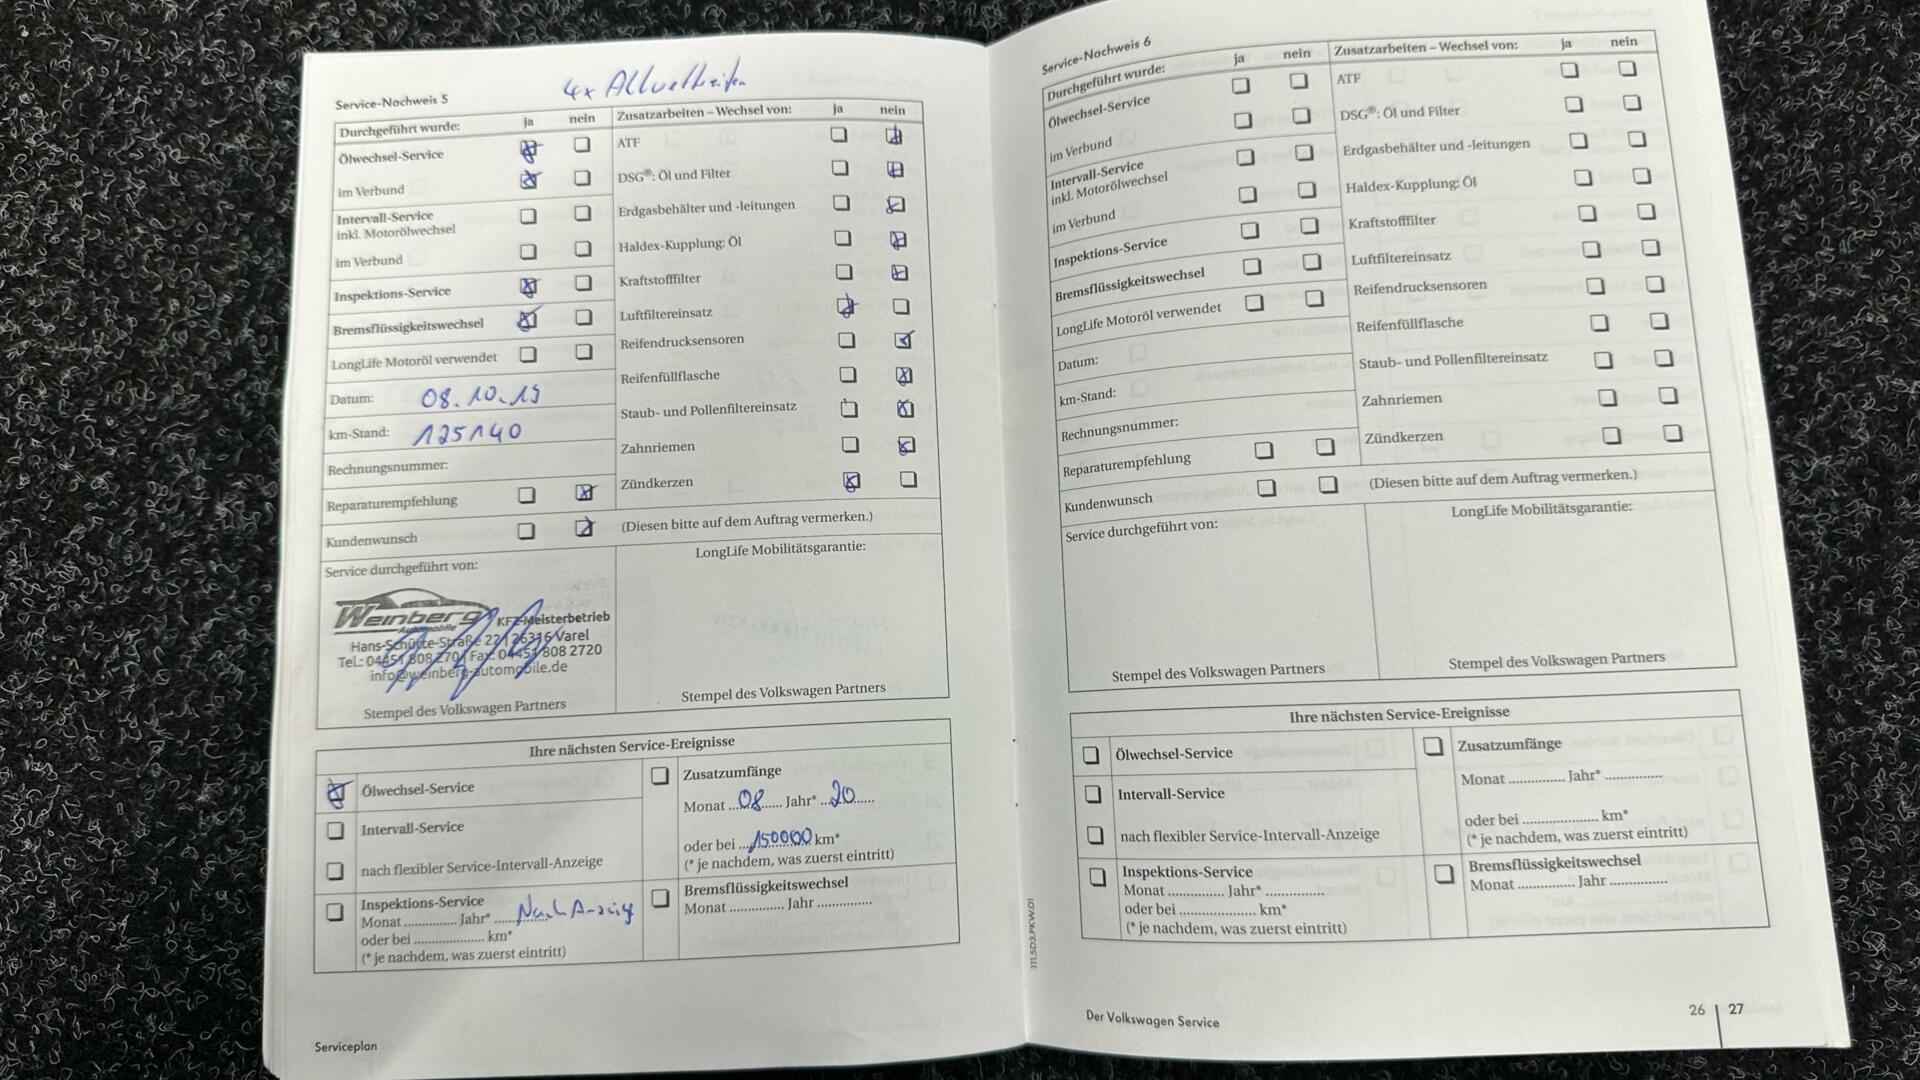 Service-Nachweis 5
4x Allwetterreifen
Durchgeführt wurde: ja nein
Zusatzarbeiten – Wechsel von: ja nein
Ölwechsel-Service
im Verbund
Intervall-Service
inkl. Motorölwechsel
im Verbund
Inspektions-Service
Bremsflüssigkeitswechsel
LongLife Motoröl verwendet
Datum: 08.10.19
km-Stand: 125140
Rechnungsnummer:
Reparaturempfehlung
Kundenwunsch
ATF
DSG®: Öl und Filter
Erdgasbehälter und -leitungen
Haldex-Kupplung: Öl
Kraftstofffilter
Luftfiltereinsatz
Reifendrucksensoren
Reifenfüllflasche
Staub- und Pollenfiltereinsatz
Zahnriemen
Zündkerzen
(Diesen bitte auf dem Auftrag vermerken.)
Service durchgeführt von:
Weinberg KFZ-Meisterbetrieb
Automobile
Hans-Schütte-Straße 22 | 26316 Varel
Tel.: 04451 808 270 | Fax: 04451 808 2720
info@weinberg-automobile.de
Stempel des Volkswagen Partners
LongLife Mobilitätsgarantie:
Stempel des Volkswagen Partners
Ihre nächsten Service-Ereignisse
Ölwechsel-Service
Intervall-Service
nach flexibler Service-Intervall-Anzeige
Inspektions-Service
Monat .............. Jahr* ...... Nach Anzeige
oder bei .................... km*
(* je nachdem, was zuerst eintritt)
Zusatzumfänge
Monat ...08...... Jahr* ...20......
oder bei ...150000 km*
(* je nachdem, was zuerst eintritt)
Bremsflüssigkeitswechsel
Monat .............. Jahr ..............
Serviceplan
Service-Nachweis 6
Durchgeführt wurde: ja nein
Zusatzarbeiten – Wechsel von: ja nein
Ölwechsel-Service
im Verbund
Intervall-Service
inkl. Motorölwechsel
im Verbund
Inspektions-Service
Bremsflüssigkeitswechsel
LongLife Motoröl verwendet
Datum:
km-Stand:
Rechnungsnummer:
Reparaturempfehlung
Kundenwunsch
ATF
DSG®: Öl und Filter
Erdgasbehälter und -leitungen
Haldex-Kupplung: Öl
Kraftstofffilter
Luftfiltereinsatz
Reifendrucksensoren
Reifenfüllflasche
Staub- und Pollenfiltereinsatz
Zahnriemen
Zündkerzen
(Diesen bitte auf dem Auftrag vermerken.)
Service durchgeführt von:
Stempel des Volkswagen Partners
LongLife Mobilitätsgarantie:
Stempel des Volkswagen Partners
Ihre nächsten Service-Ereignisse
Ölwechsel-Service
Intervall-Service
nach flexibler Service-Intervall-Anzeige
Inspektions-Service
Monat .............. Jahr* ..............
oder bei .................... km*
(* je nachdem, was zuerst eintritt)
Zusatzumfänge
Monat .............. Jahr* ..............
oder bei .................... km*
(* je nachdem, was zuerst eintritt)
Bremsflüssigkeitswechsel
Monat .............. Jahr ..............
Der Volkswagen Service
26 | 27